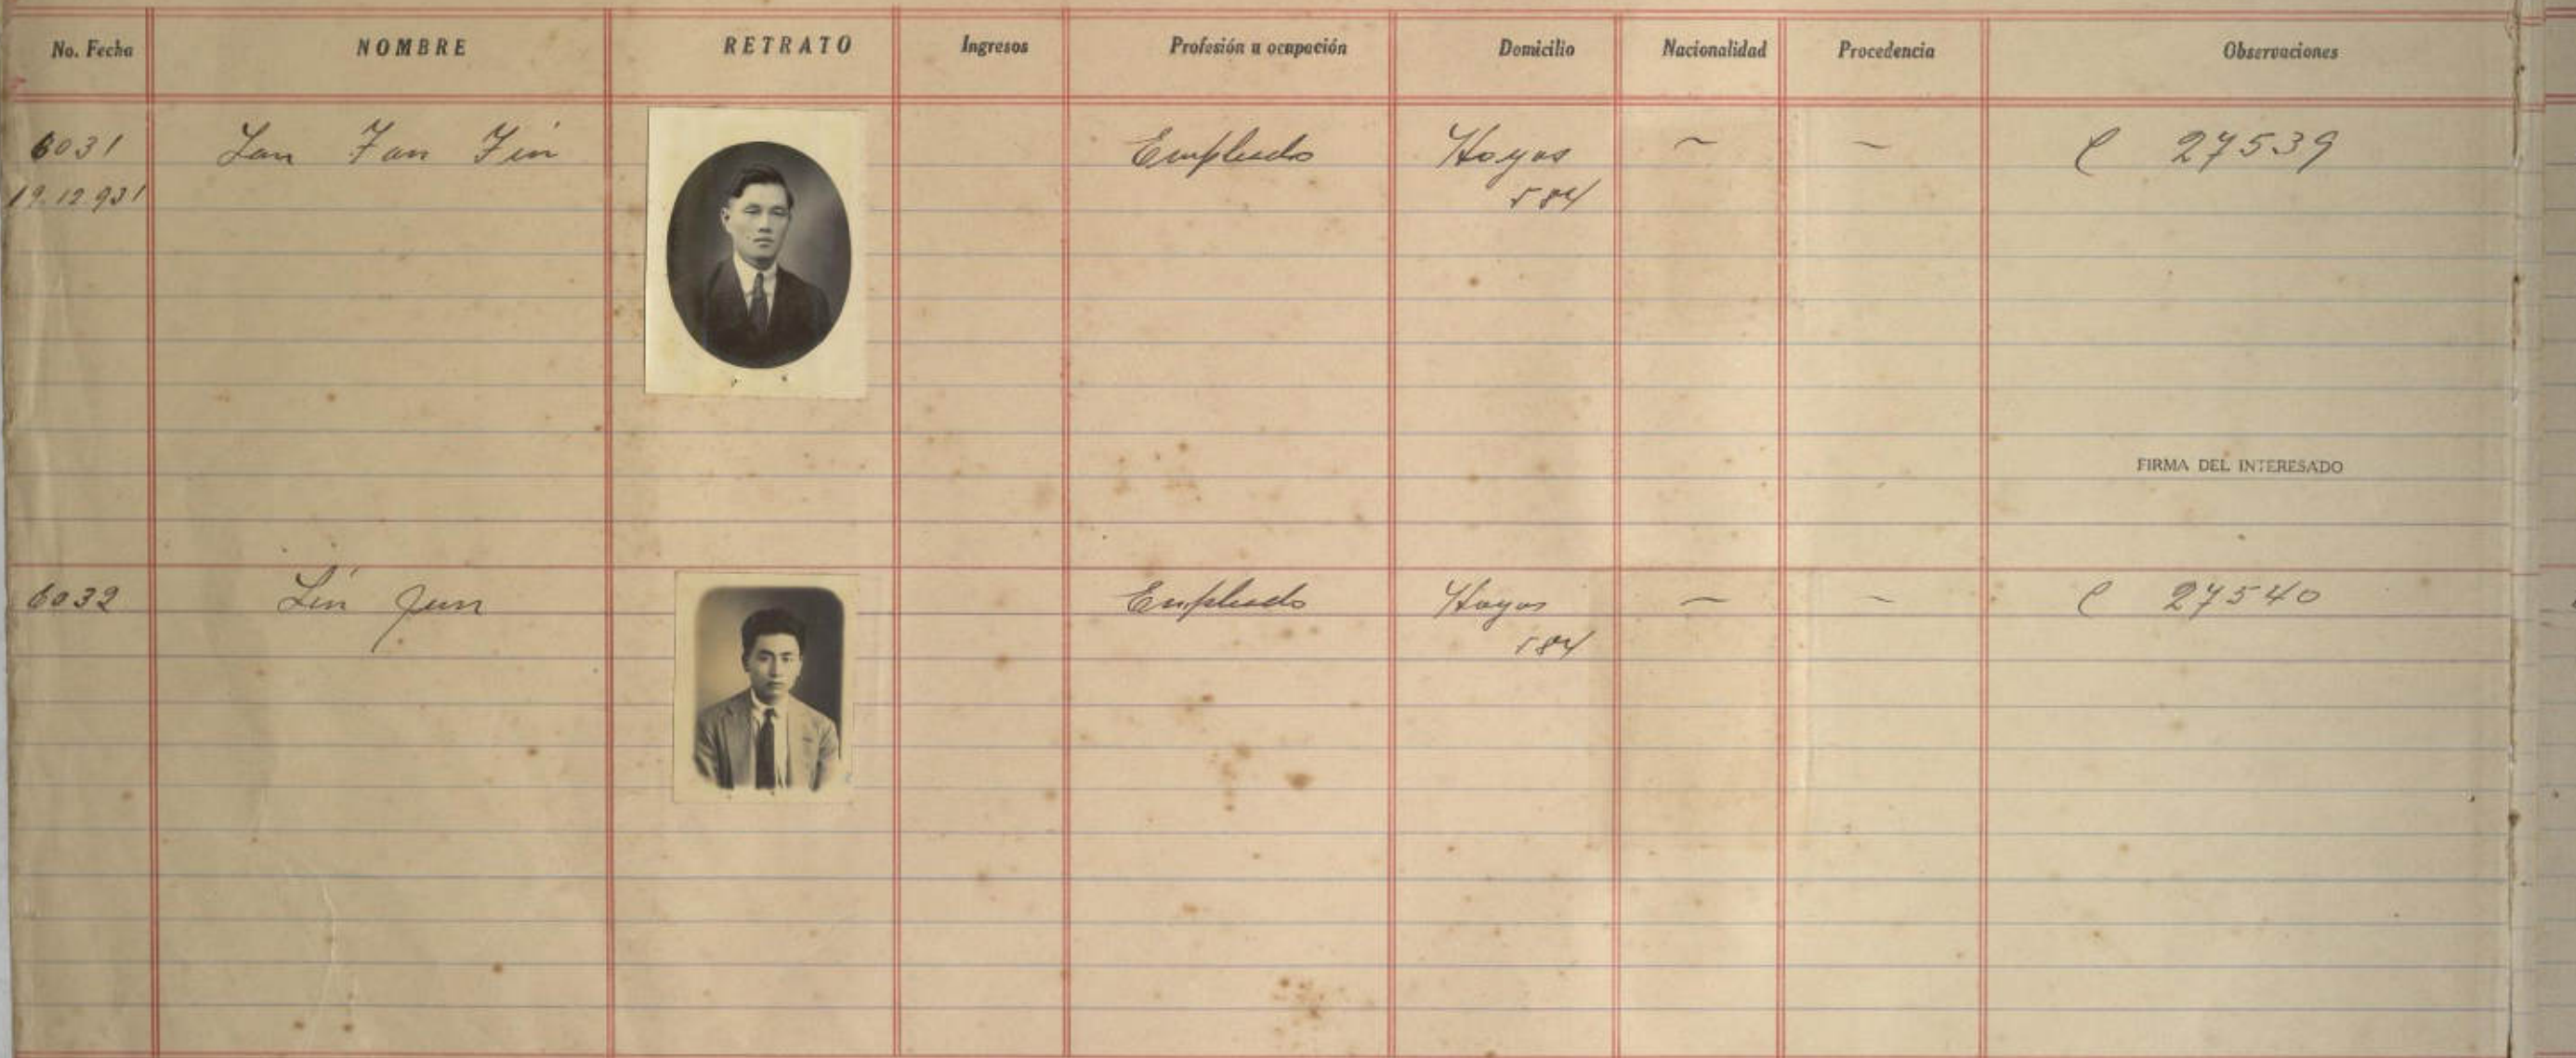 No. Fecha NOMBRE RETRATO Ingresos Profesión u ocupación Domicilio Nacionalidad Procedencia Observaciones
6031 Lan Fan Fin Empleado Hoyos ~ ~ C 27539
19.12.931 584
FIRMA DEL INTERESADO
6032 Lin Jun Empleado Hoyos ~ ~ C 27540
584